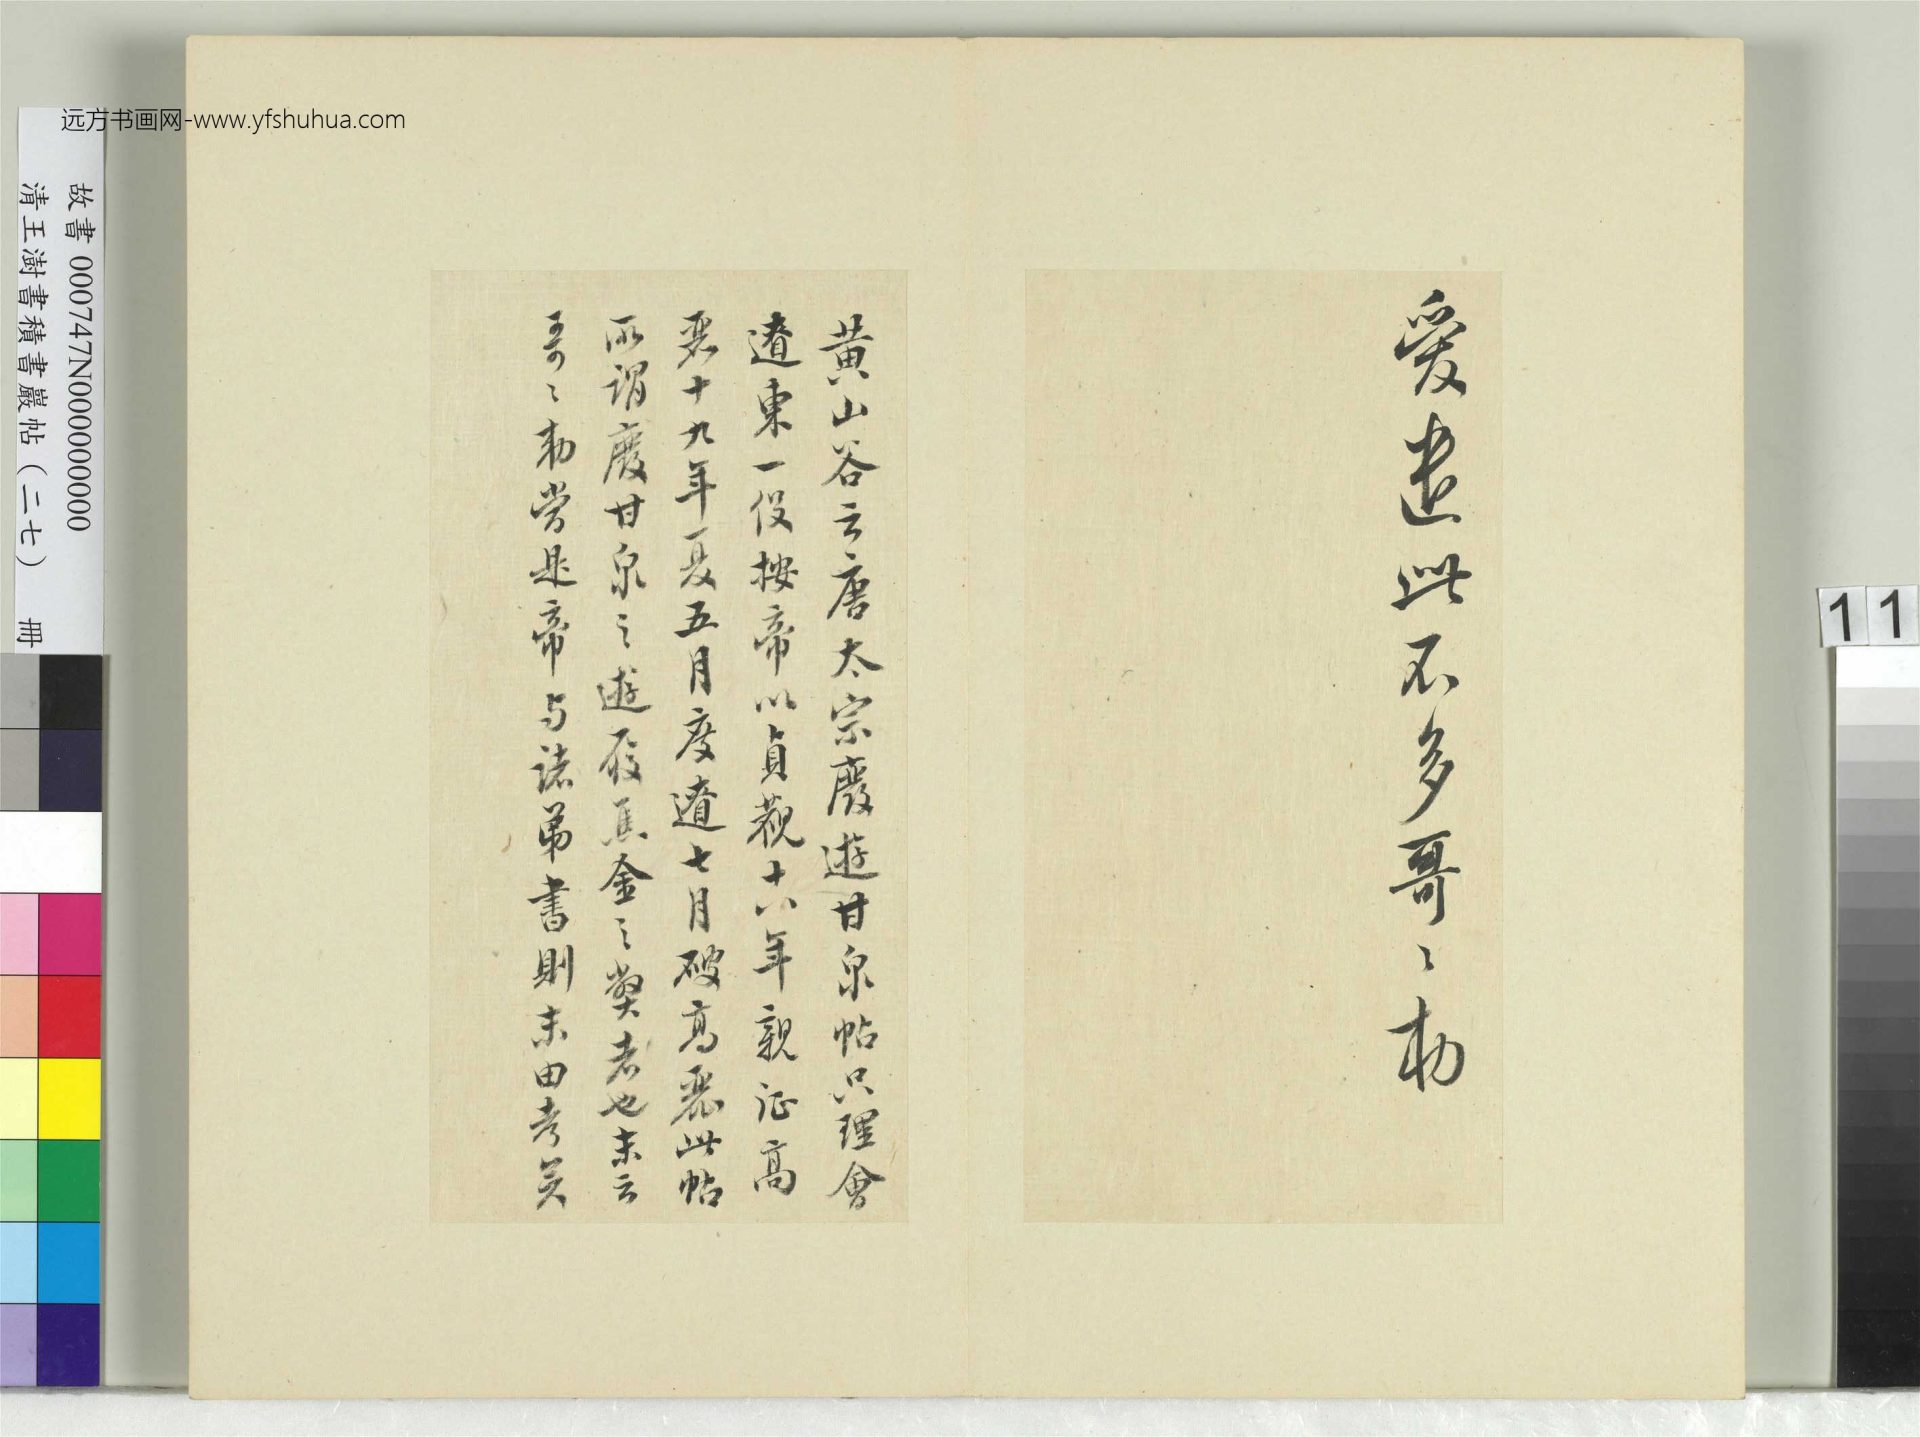 远方书画网-www.yfshuhua.com
故書 000747N000000000
清王澍書積書巖帖(二七) 冊
11
愛遣此不多哥〻勅
黄山谷云唐太宗廢遊甘泉帖只理會
遼東一役按帝以貞觀十八年親征高
麗十九年夏五月度遼七月破高麗此帖
所謂廢甘泉之遊 金之弊者也末云
哥〻勅當是帝与諸弟書則末由考矣